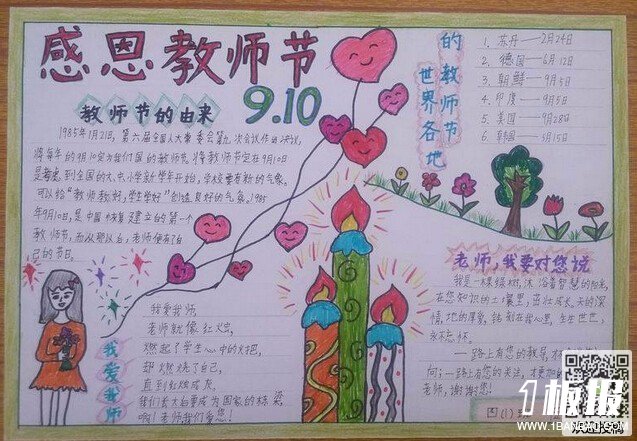 感恩教师节
9.10
教师节的由来
1985年1月21日，第六届全国人大常委会第九次会议作出决议，
将每年的9月10定为我们国的教师节。将教师节定在9月10日
到全国的大、中、小学新学年开始，学校要有新的气象。
可以给"教师教好，学生学好"创造良好的气氛。1985
年9月10日，是中国恢复建立的第一个
教师节，而从那以后，老师便有了自
己的节日。
世界各地
的教师节
1、苏丹——2月24日
2、德国——6月12日
3、朝鲜——9月5日
4、印度——9月5日
5、美国——9月28日
6、韩国——5月15日
我爱教师
我爱我师
老师就像红烛，
燃起了学生心中的火把，
却燃烧了自己，
直到
我们长大
啊！老师我们爱您！
老师，我要对您说
我是一棵绿树，沐浴着智慧的阳光，
在您知识的土壤里，茁壮成长。天的深
情，地的厚爱，铭刻在我心里，生生世世，
永难忘怀。
一路上有您的教导，才
向；一路上有您的关注，才更加
老师，谢谢您！
四(1)
1板报
WWW.1BANBAO.COM